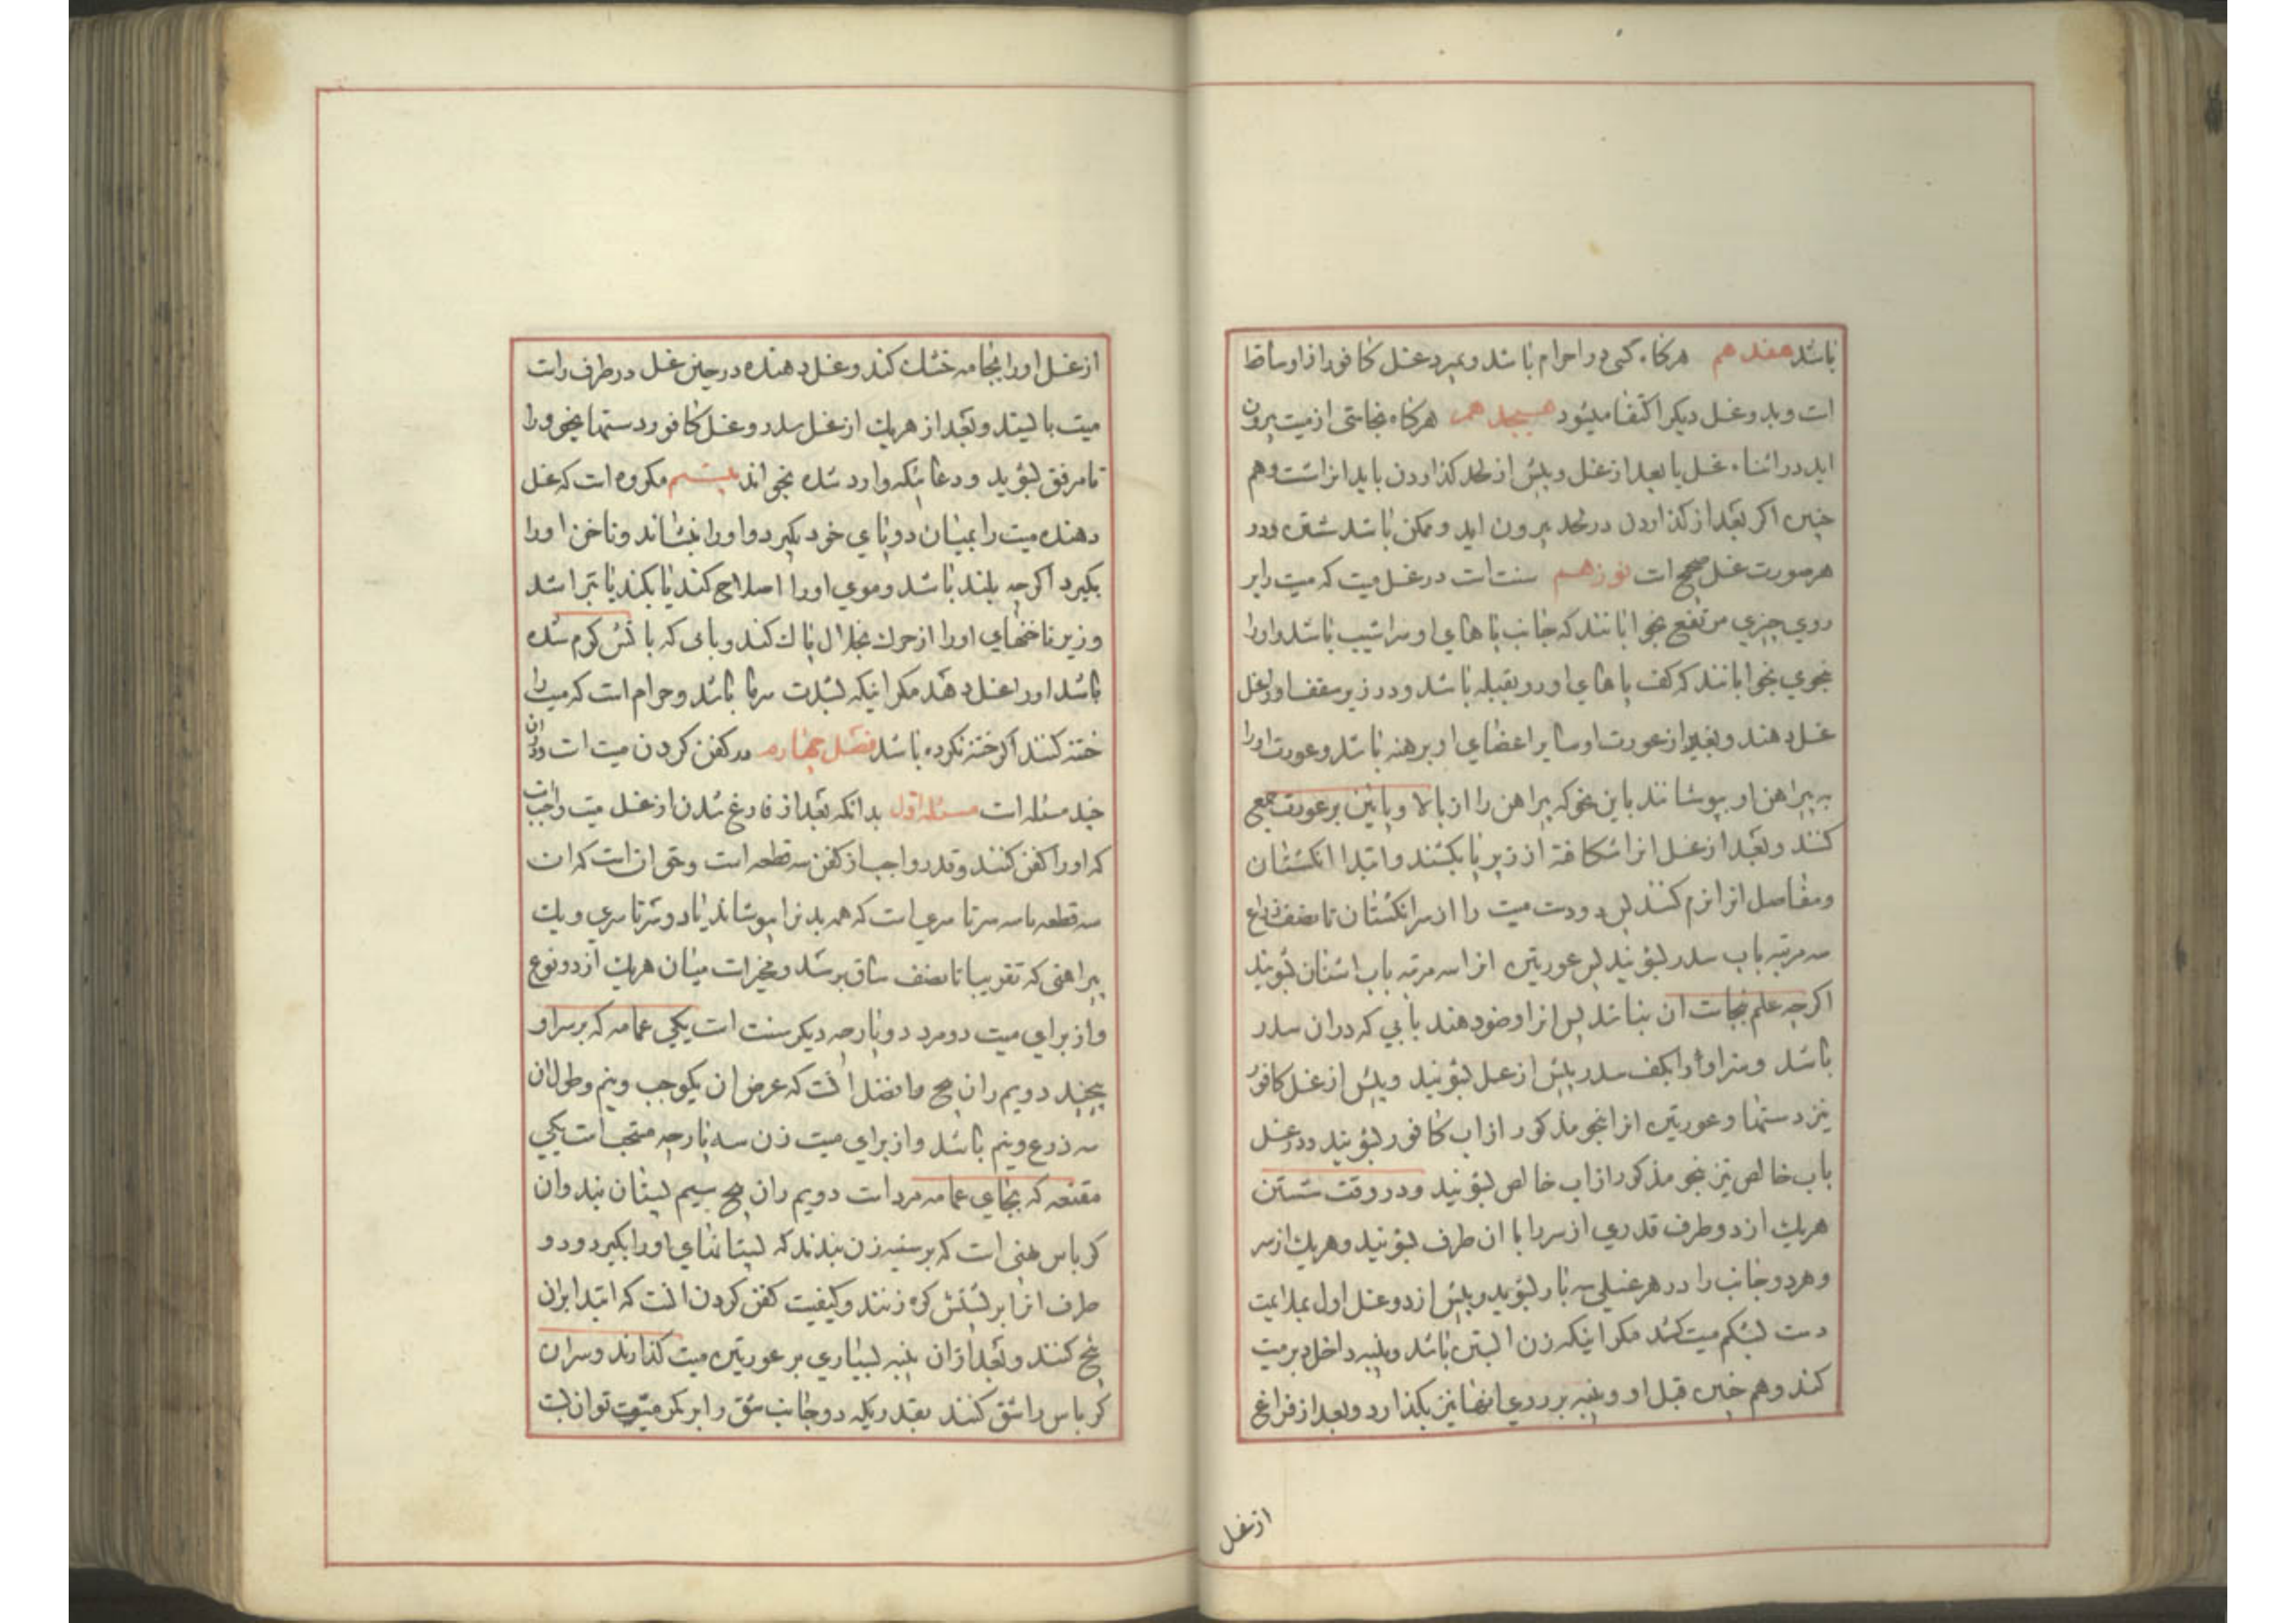 باشد هفدهم هرکاه کسی در احرام باشد و بمیرد غسل کافور از او ساقط
است و بدو غسل دیکر اکتفا میشود هیجدهم هرکاه نجاستی از میت بیرون
اید در اثناء غسل یا بعد از غسل و پیش از لحد کذاردن باید انرا شست و هم
چنین اکر بعد از کذاردن در لحد بیرون اید و ممکن باشد شستن و در
هر صورت غسل صحیح است نوزدهم سنت است در غسل میت که میت را بر
روی چیزی مرتفع بخوابانند که جانب پاهای او سراشیب باشد و او را
بنحوی بخوابانند که کف پاهای او رو بقبله باشد و در زیر سقف او را غسل
غسل دهند و بغیر از عورت او سایر اعضای او برهنه باشد و عورت او را
به پیراهن او بپوشانند باین نحو که پیراهن را از بالا و پایین بر عورت جمع
کنند و بعد از غسل انرا شکافته از زیر پا بکشند و ابتدا انکشتان
و مفاصل انرا نرم کنند پس دو دست میت را از سر انکشتان تا نصف ذراع
سه مرتبه باب سدر بشویند پس عورتین انرا سه مرتبه باب اشنان بشویند
اکرچه علم بنجاست ان نباشد پس انرا وضو دهند بابی که در ان سدر
باشد و سر او را بکف سدر پیش از غسل بشویند و پیش از غسل کافور
نیز دستها و عورتین انرا بنحو مذکور از اب کافور بشویند و در غسل
باب خالص نیز بنحو مذکور از اب خالص بشویند و در وقت شستن
هریك از دو طرف قدری از سر را با ان طرف بشویند و هریك از سر
و هر دو جانب را در هر غسلی سه بار بشوید و پیش از دو غسل اول بملایمت
دست بشکم میت کشد مکر اینکه زن ابستن باشد و پنبه داخل دبر میت
کند و هم چنین قبل او و پنبه بر روی انها نیز بکذارد و بعد از فراغ
از غسل
از غسل او را بجامه خشك کند و غسل دهنده در حین غسل در طرف راست
میت بایستد و بعد از هریك از غسل سدر و غسل کافور دستها بخود را
تا مرفق بشوید و دعائیکه وارد شده بخواند بیستم مکروه است که غسل
دهنده میت را بمیان دو پای خود بکیرد و او را بنشاند و ناخن او را
بکیرد اکرچه بلند باشد و موی او را اصلاح کند یا بکند یا بتراشد
و زیر ناخنهای او را از چرك بخلال پاك کند و بابی که باتش کرم شده
باشد او را غسل دهد مکر اینکه بشدت سرما باشد و حرام است که میت را
ختنه کنند اکر ختنه نکرده باشد فصل چهارم در کفن کردن میت است و در ان
چند مسئله است مسئله اول بدانکه بعد از فارغ شدن از غسل میت واجب است
که او را کفن کنند و قدر واجب از کفن سه قطعه است و حق ان است که ان
سه قطعه یا سه سرتاسری است که همه بدنرا بپوشاند یا دو سرتاسری و یك
پیراهنی که تقریبا تا نصف ساق برسد و مخیر است میان هریك از دو نوع
و از برای میت دو مرد دو پارچه دیکر سنت است یکی عمامه که بر سر او
بپیچند دویم ران پیچ و افضل انست که عرض ان یکوجب و نیم و طول ان
سه ذرع و نیم باشد و از برای میت زن سه پارچه مستحب است یکی
مقنعه که بجای عمامه مرد است دویم ران پیچ سیم پستان بند و ان
کرباس پهنی است که بر سینه زن بندند که پستانهای او را بکیرد و دو
طرف انرا بر پشتش کره زنند و کیفیت کفن کردن انست که ابتدا بران
پیچ کنند و بعد از ان پنبه بسیاری بر عورتین میت کذارند و سر ان
کرباس را شق کنند بقدریکه دو جانب شق را بر کمر میت توان بست